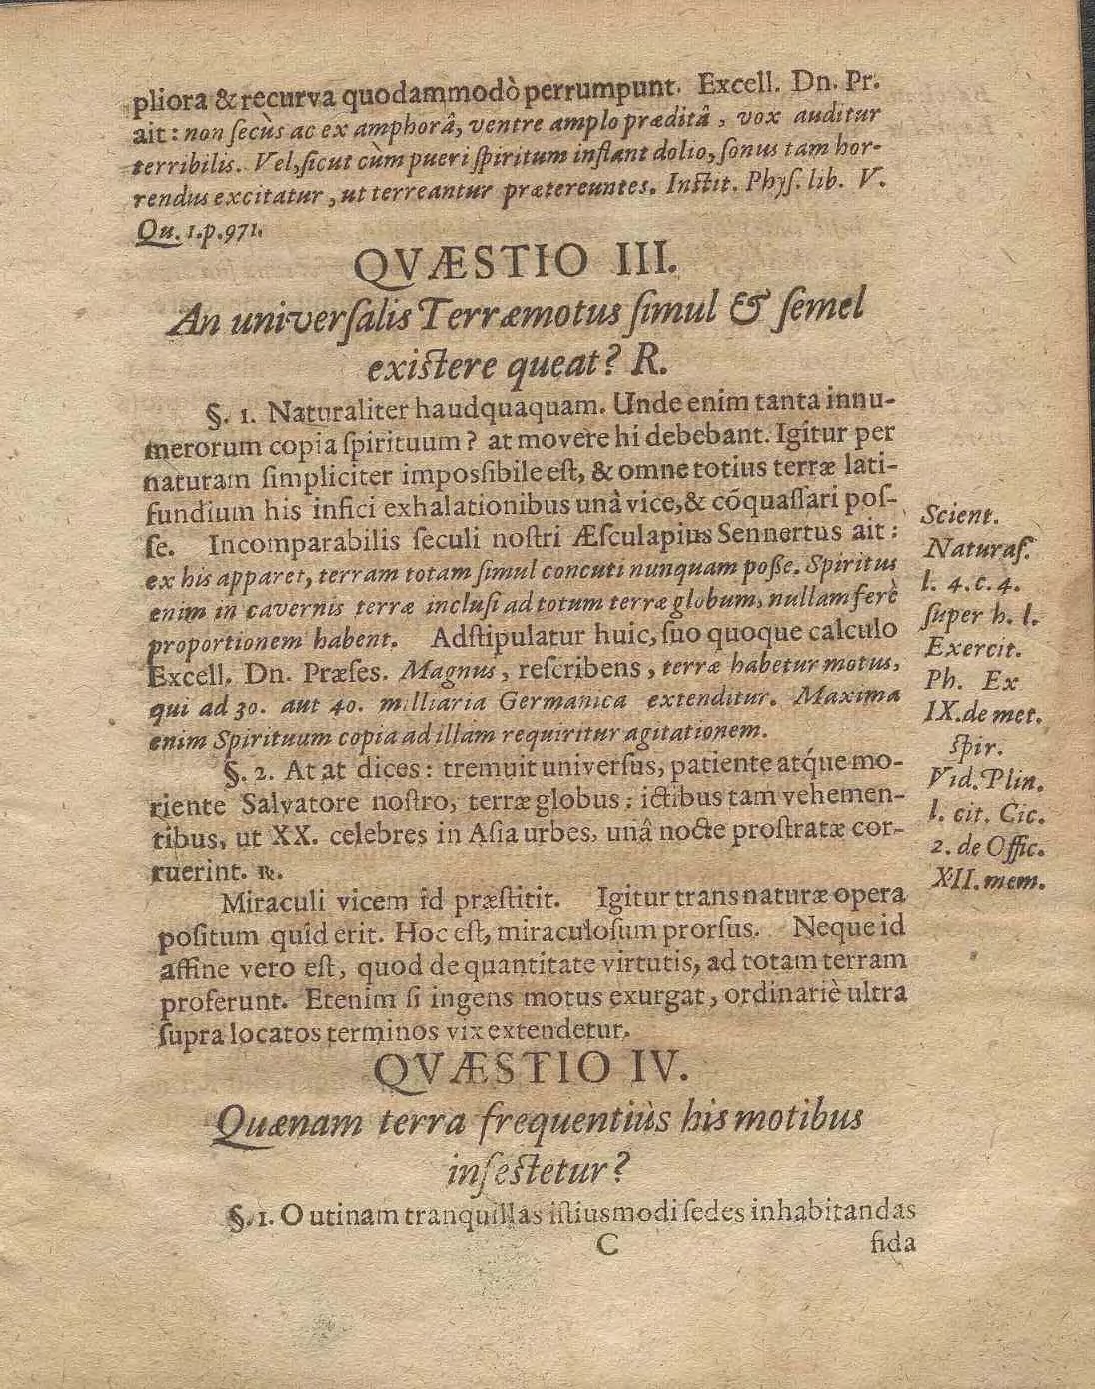 pliora & recurva quodammodò perrumpunt. Excell. Dn. Pr.
ait: non ſecùs ac ex amphorâ, ventre amplo præditâ, vox auditur
terribilis. Vel, ſicut cùm pueri ſpiritum inſlant dolio, ſonus tam hor-
rendus excitatur, ut terreantur prætereuntes. Inſtit. Phyſ. lib. V.
Qu. 1. p. 971.
QVÆSTIO III.
An univerſalis Terræmotus ſimul & ſemel
exiſtere queat? R.
§. 1. Naturaliter haudquaquam. Unde enim tanta innu-
merorum copia ſpirituum? at movere hi debebant. Igitur per
naturam ſimpliciter impoſſibile eſt, & omne totius terræ lati-
fundium his infici exhalationibus unâ vice, & cõquaſſari poſ-
ſe. Incomparabilis ſeculi noſtri Æſculapius Sennertus ait:
ex his apparet, terram totam ſimul concuti nunquam poſſe. Spiritus
enim in cavernis terræ incluſi ad totum terræ globum, nullam ferè
proportionem habent. Adſtipulatur huic, ſuo quoque calculo
Excell. Dn. Præſes. Magnus, reſcribens, terræ habetur motus,
qui ad 30. aut 40. milliaria Germanica extenditur. Maxima
enim Spirituum copia ad illam requiritur agitationem.
Scient.
Naturaſ.
l. 4. c. 4.
ſuper h. l.
Exercit.
Ph. Ex
IX. de met.
ſpir.
Vid. Plin.
l. cit. Cic.
2. de Offic.
XII. mem.
§. 2. At at dices: tremuit univerſus, patiente atq́ue mo-
riente Salvatore noſtro, terræ globus; ictibus tam vehemen-
tibus, ut XX. celebres in Aſia urbes, unâ nocte proſtratæ cor-
ruerint. ℞.
Miraculi vicem id præſtitit. Igitur trans naturæ opera
poſitum quid erit. Hoc eſt, miraculoſum prorſus. Neque id
affine vero eſt, quod de quantitate virtutis, ad totam terram
proferunt. Etenim ſi ingens motus exurgat, ordinariè ultra
ſupra locatos terminos vix extendetur.
QVÆSTIO IV.
Quænam terra frequentiùs his motibus
infeſtetur?
§. 1. O utinam tranquillas iſtiusmodi ſedes inhabitandas
C fida